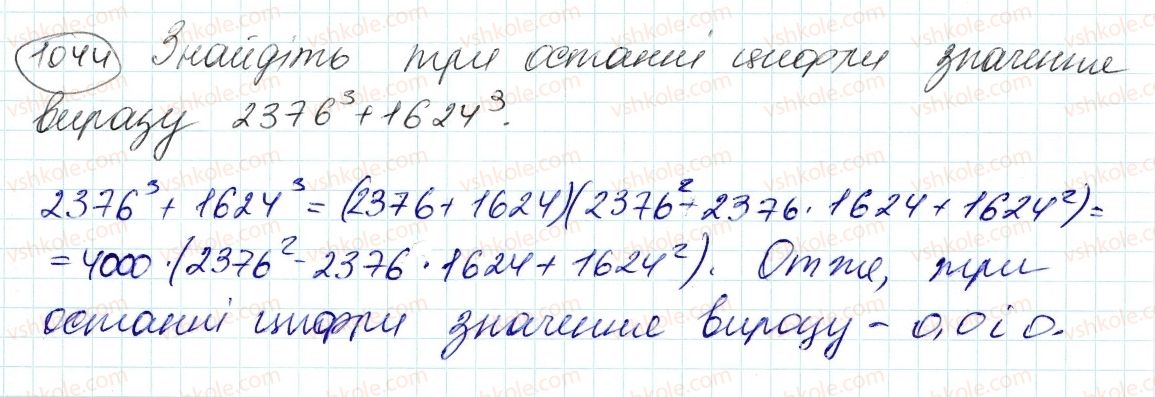 1044 Знайдіть три останні цифри значення
виразу 2376³+1624³.
2376³+1624³=(2376+1624)(2376²-2376·1624+1624²)=
=4000·(2376²-2376·1624+1624²). Отже, три
останні цифри значення виразу - 0,0 і 0.